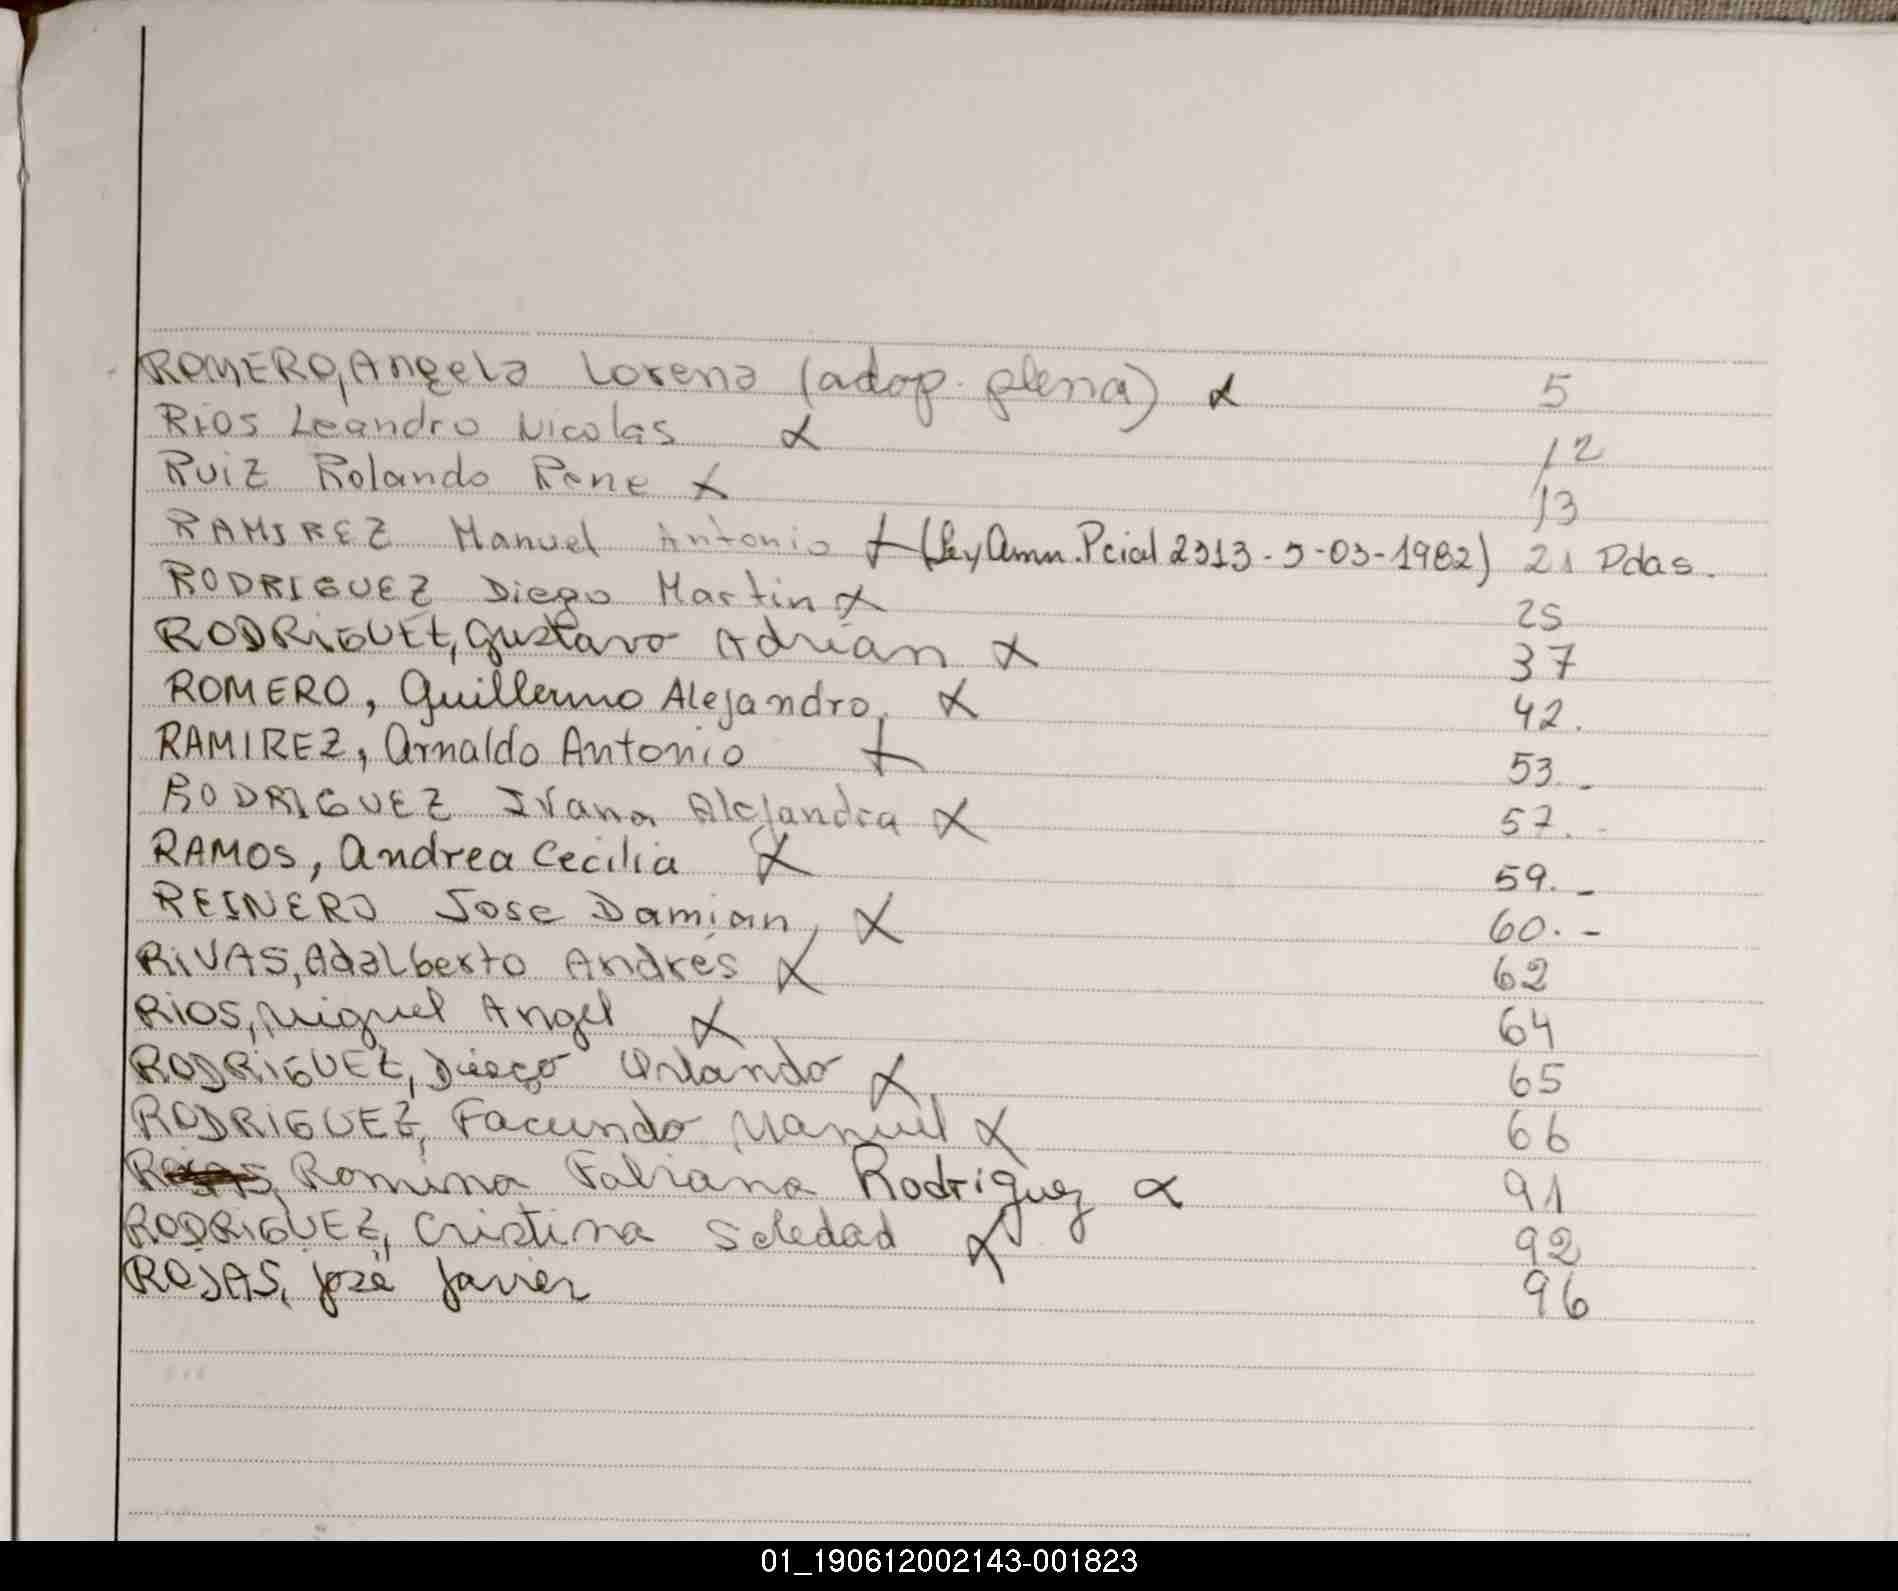 ROMERO, Angela Lorena (adop. plena) x 5
RIOS Leandro Nicolas x 12
RUIZ Rolando Rene x 13
RAMIREZ Manuel Antonio x (Ley Amn. Pcial 2313-5-03-1982) 21 Pdas.
RODRIGUEZ Diego Martin x 25
RODRIGUEZ, Gustavo Adrián x 37
ROMERO, Guillermo Alejandro, x 42.
RAMIREZ, Arnaldo Antonio x 53.-
RODRIGUEZ Ivana Alejandra x 57.-
RAMOS, Andrea Cecilia x 59.-
REINERO Jose Damian, x 60.-
RIVAS, Adalberto Andrés x 62
RIOS, Miguel Angel x 64
RODRIGUEZ, Diego Orlando x 65
RODRIGUEZ, Facundo Manuel x 66
Romina Fabiana Rodriguez x 91
RODRIGUEZ, Cristina Soledad x 92
ROJAS, José Javier 96
01_190612002143-001823